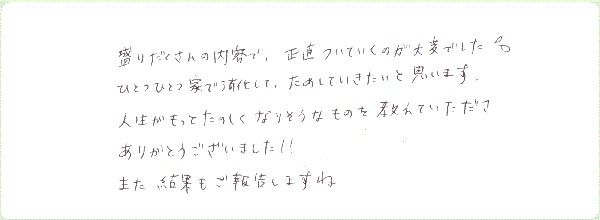 盛りだくさんの内容で、正直ついていくのが大変でした
ひとつひとつ家で消化して、ためしていきたいと思います。
人生がもっとたのしくなりそうなものを教えていただき
ありがとうございました!!
また結果もご報告しますね